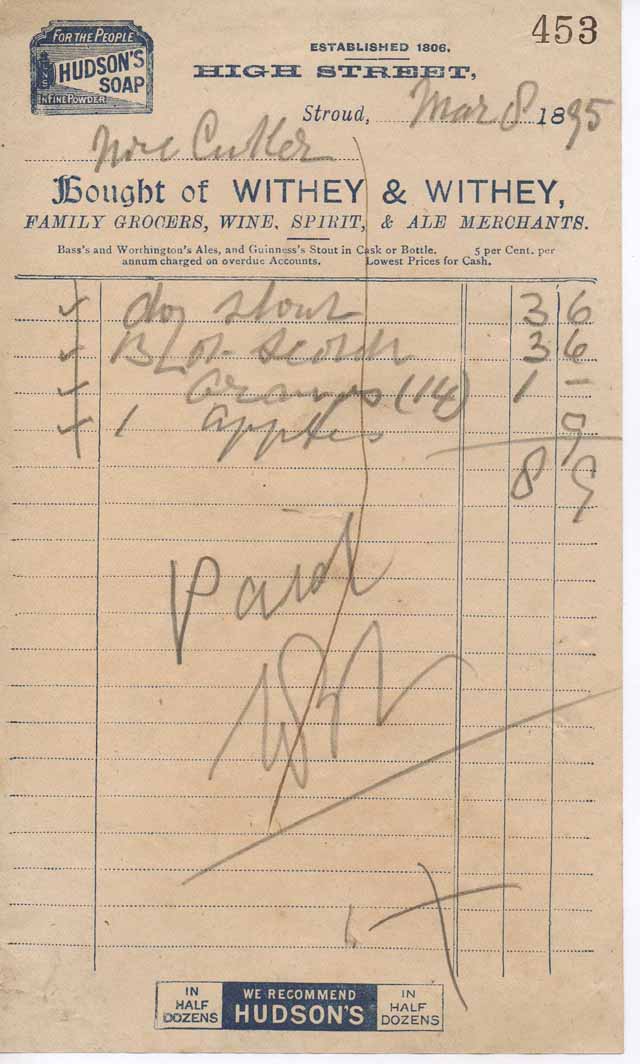 453
FOR THE PEOPLE
HUDSON'S
SOAP
IN FINE POWDER
ESTABLISHED 1806.
HIGH STREET,
Stroud, Mar 8 1895
Cutler
Bought of WITHEY & WITHEY,
FAMILY GROCERS, WINE, SPIRIT, & ALE MERCHANTS.
Bass's and Worthington's Ales, and Guinness's Stout in Cask or Bottle. 5 per Cent. per
annum charged on overdue Accounts. Lowest Prices for Cash.
doz stout 3 6
Scotch 3 6
Oranges (14) 1 -
1 apples 9
8 9
Paid
IN HALF DOZENS
WE RECOMMEND
HUDSON'S
IN HALF DOZENS